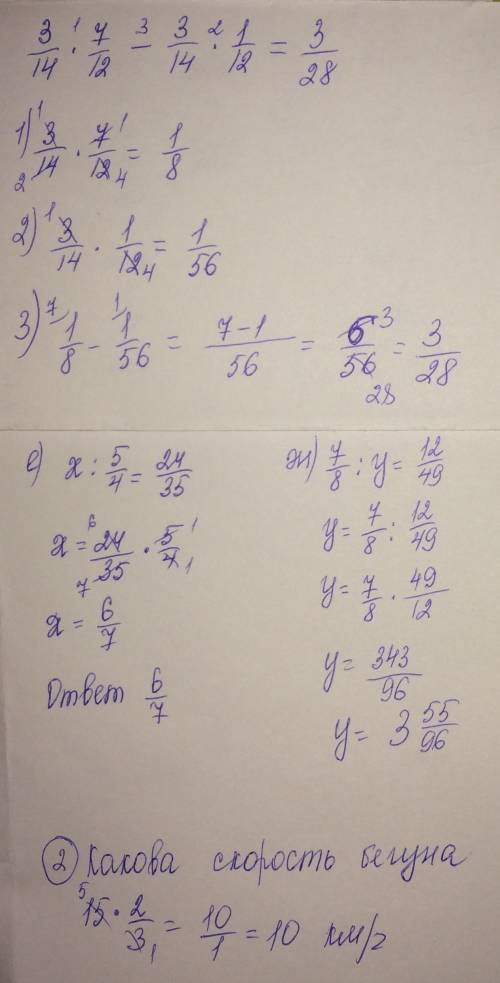 3/14 ·¹ 7/12 −³ 3/14 ·² 1/12 = 3/28
1) 3¹/14₂ · 7¹/12₄ = 1/8
2) 3¹/14 · 1/12₄ = 1/56
3) ⁷1/8 − ¹1/56 = 7−1/56 = 6³/56₂₈ = 3/28
е) x : 5/4 = 24/35
x = 24⁶/35₇ · 5¹/4₁
x = 6/7
Ответ 6/7
ж) 7/8 : y = 12/49
y = 7/8 : 12/49
y = 7/8 · 49/12
y = 343/96
y = 3 55/96
② Какова скорость бегуна
15⁵ · 2/3₁ = 10/1 = 10 км/г